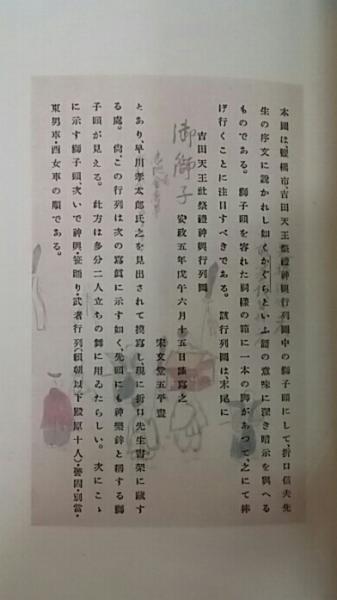 本圖は、豐橋市、吉田天王祭禮神輿行列圖中の獅子頭にして、折口信夫先
生の序文に說かれし如くかぐらといふ語の意味に深き暗示を與へる
ものである。獅子頭を容れた祠樣の箱に一本の脚があつて、之にて捧
げ行くことに注目すべきである。該行列圖は、末尾に
吉田天王社祭禮神輿行列圖
御獅子
安政五年戊午六月十五日謹寫之
宋文堂五平豊
とあり、早川孝太郎氏、之を見出されて摸寫し、現に折口先生書架に藏す
る處。尙、この行列は次の寫眞に示す如く、先頭にも神樂鉾と稱する獅
子頭が見える。此方は多分二人立ちの舞に用ゐたらしい。次にこゝ
に示す獅子頭、次いで神輿・笹踊り・武者行列(賴朝以下殿原十人)・警固・別當・
東男車西女車の順である。